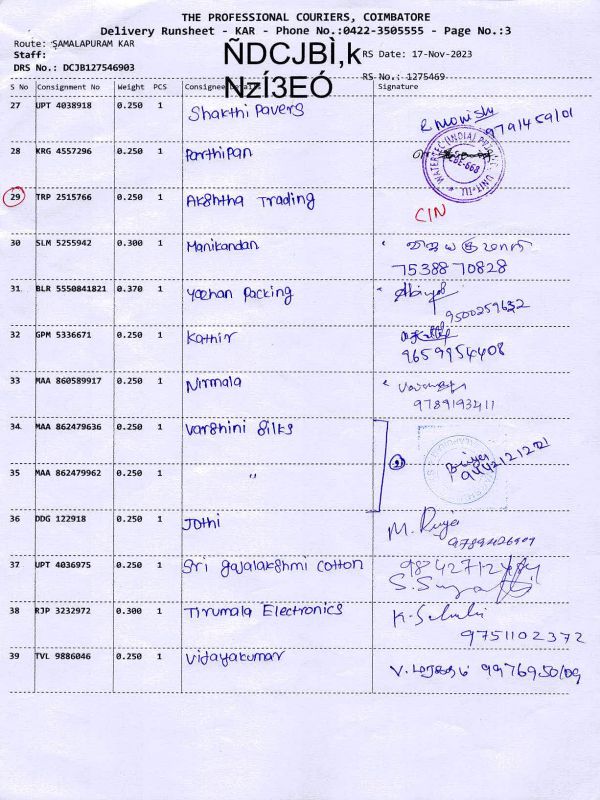 THE PROFESSIONAL COURIERS, COIMBATORE
Delivery Runsheet - KAR - Phone No.:0422-3505555 - Page No.:3
Route: SAMALAPURAM KAR
Staff:
DRS No.: DCJB127546903
ÑDCJBÌ,k
NzÍ3EÓ
RS Date: 17-Nov-2023
RS No.: 1275469
S No Consignment No Weight PCS Consignee Details Signature
27 UPT 4038918 0.250 1 Shakthi Pavers
28 KRG 4557296 0.250 1 Parthipan
WATERTEC (INDIA) PVT UNIT-III
CBE-668
29 TRP 2515766 0.250 1 Akshtha Trading CIN
30 SLM 5255942 0.300 1 Manikandan
7538870828
31 BLR 5550841821 0.370 1 Yoehan Packing
9500259632
32 GPM 5336671 0.250 1 Kathir
9659954408
33 MAA 860589917 0.250 1 Nirmala
9789193411
34 MAA 862479636 0.250 1 Varshini Silks
35 MAA 862479962 0.250 1 "
36 DDG 122918 0.250 1 Jothi M. Priya
37 UPT 4036975 0.250 1 Sri Gajalakshmi Cotton
38 RJP 3232972 0.300 1 Tirumala Electronics
9751102372
39 TVL 9886046 0.250 1 Vidayakumar